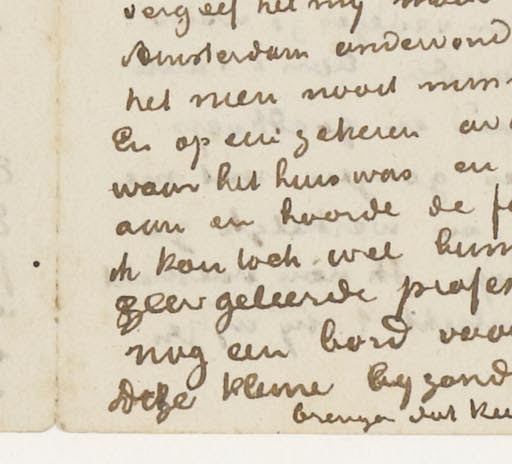 vergeef het my maar
Amsterdam ondervond
het men nooit
En op een zekeren av
waar het huis was en
aan en hoorde de fa
ik kon toch wel binn
zeer geleerde profes
nog een bord voor
Deze kleine byzond
brengen dat